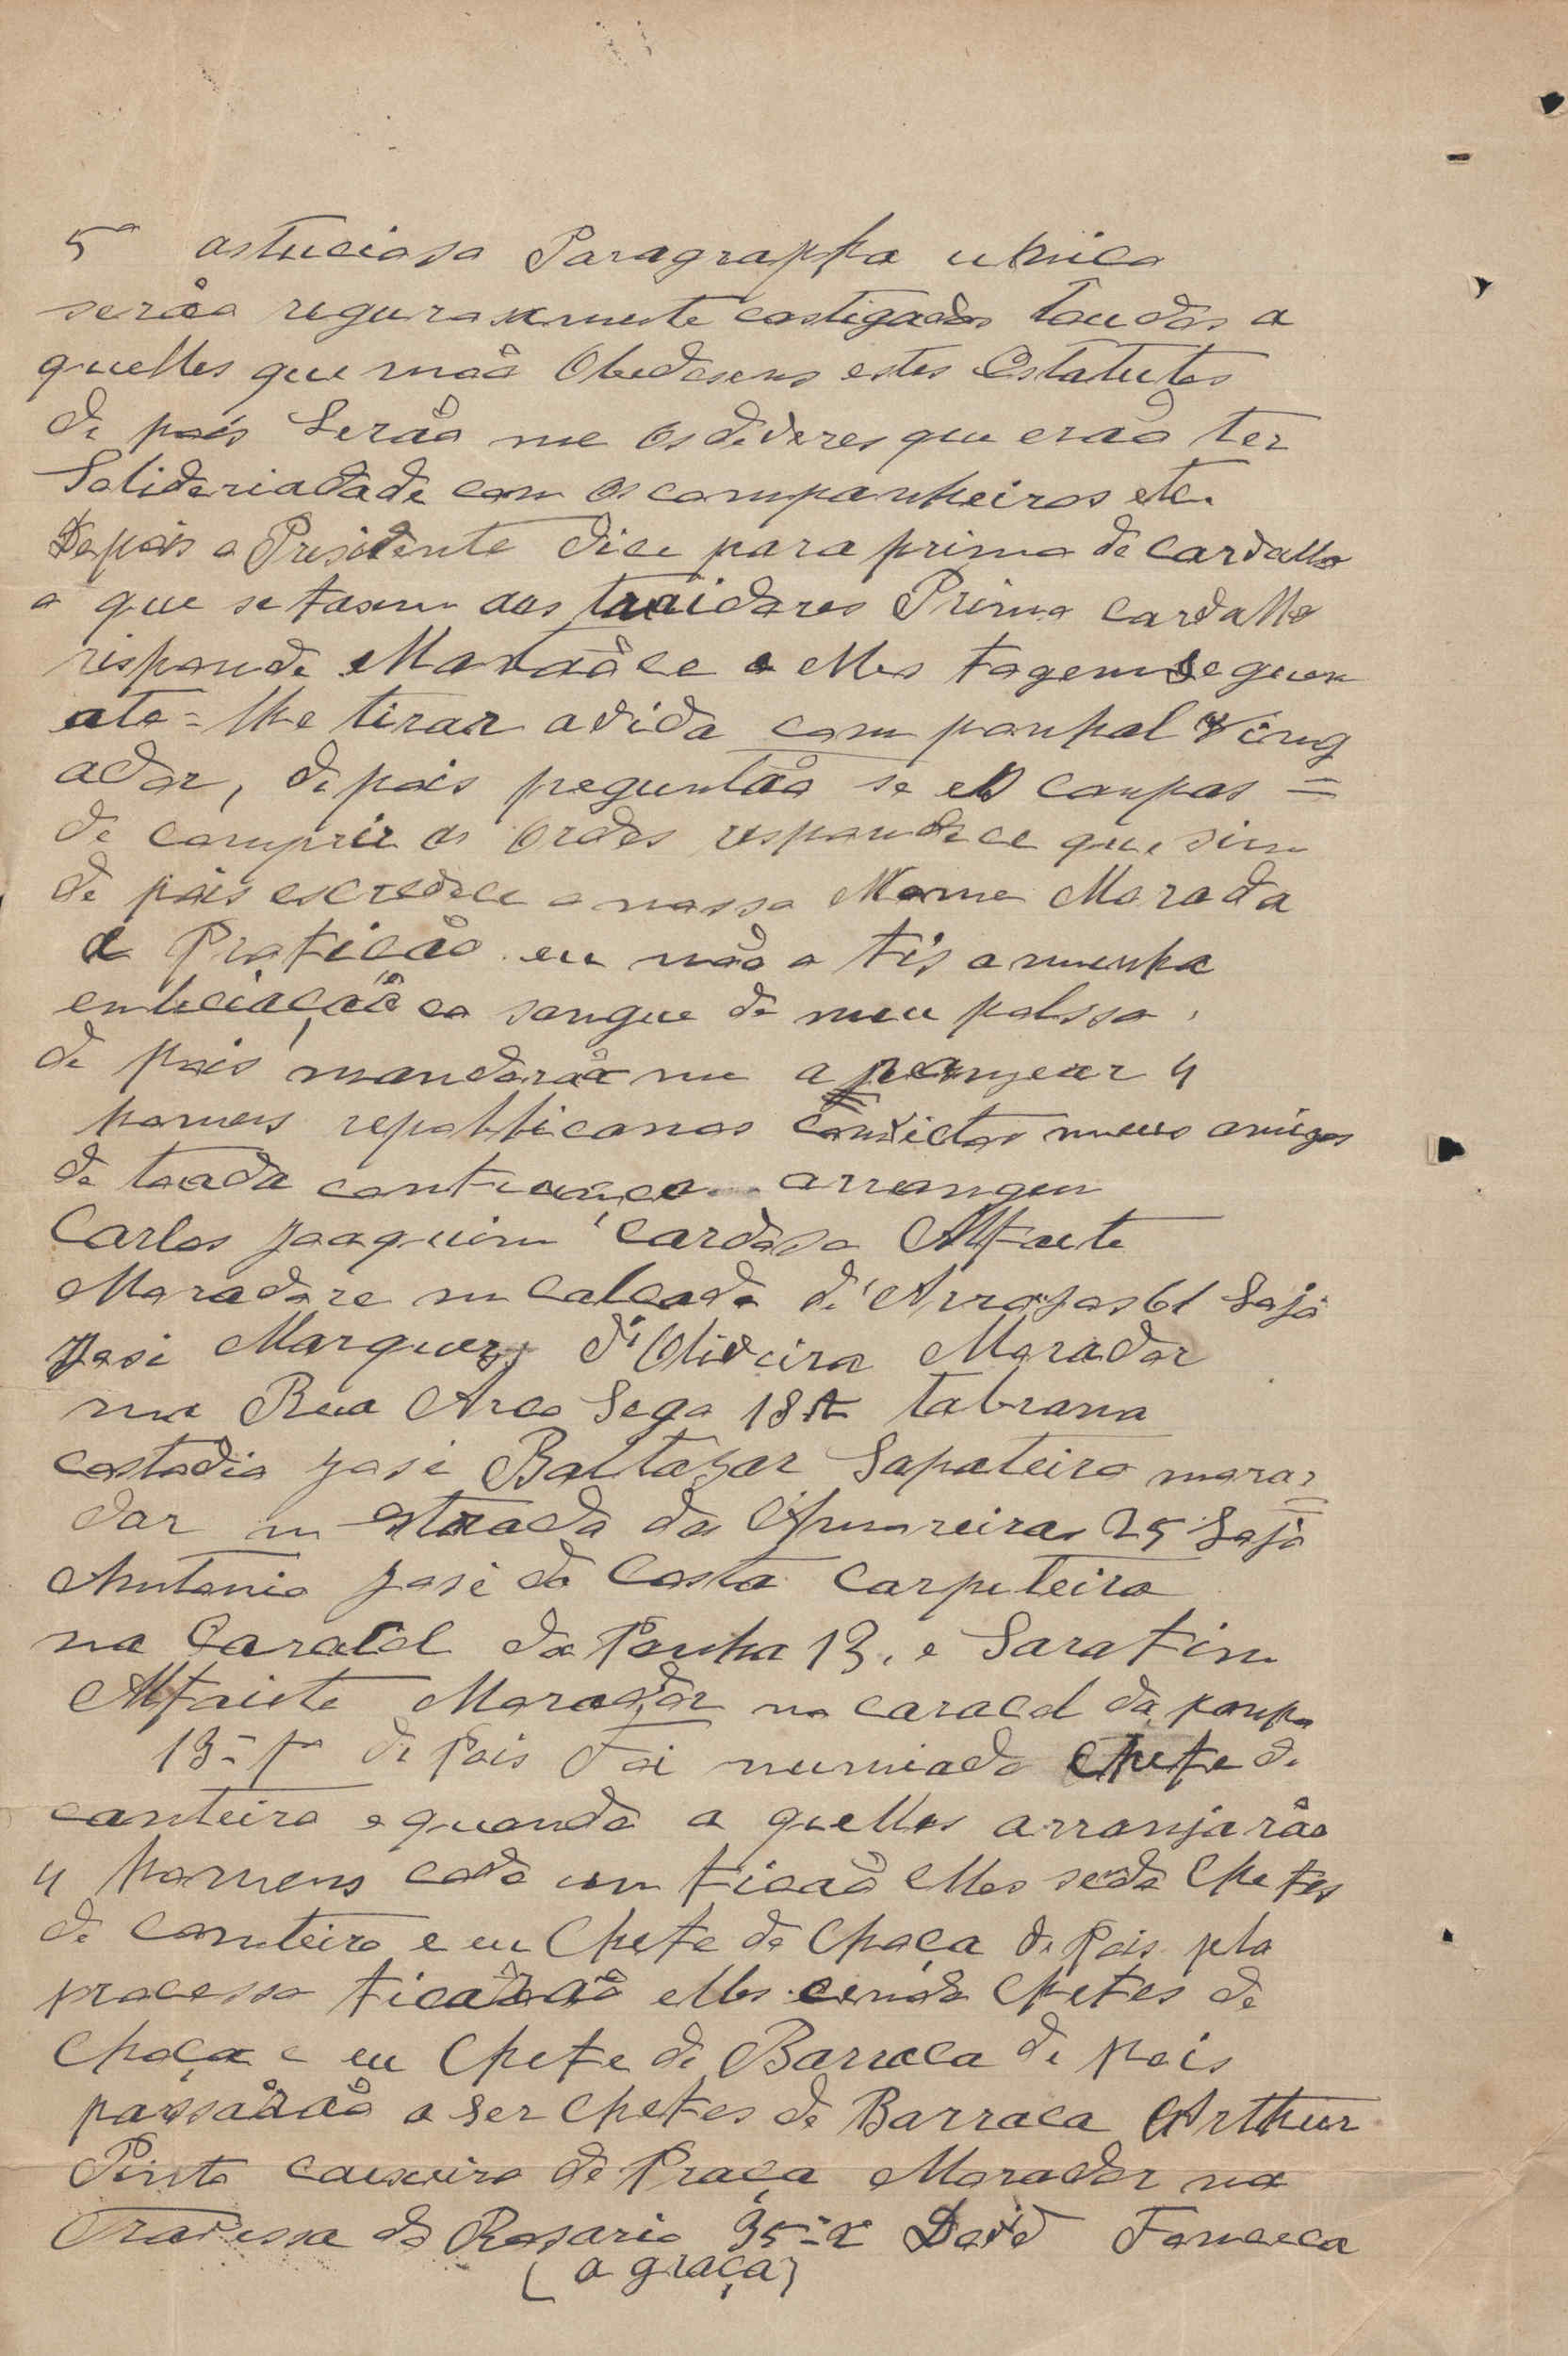 5ª astuciosa Paragrapho uhnico
serão regurosamente castigados toudos a
quelles que não Obedesens estes Estatutos
de pois Serão me os dideres que erão ter
Solideriadade com os companheiros etc.
Depois o Presidente dice para primo de cardalho
o que se fasem aos traidores Primo Cardalho
risponde Matãoce e elles fogem se guem
ate-lhe tirar a dida com punhal Ving
ador, de pois preguntão se es campas =
de comprir as Ordes respondece que sim
de pois escredece o nosso Nome Morada
e Profição eu não o fis a minha
enleciação co sangue de meu polsso.
de pois mandarão me a reanjear 4
homens republicanos Convictos meus amigos
de toada confiança arrangeu
Carlos Joaquim Cardoso Alfaete
Moradore na calcada d'Arrojos 61 Loja
José Marques d'Olideira Morador
na Rua Arco Sego 18 A tabrana
costodio José Baltazar Sapateiro mora=
dor na estrada das Amoreiras 25 Loja
Antonio José da Costa Carpeteiro
na Caracol da Penha 13. e Sarafim
Alfaiete Morador no caracol da penha
13-1º de Pois Foi numiado Chefe de
canteiro e quando a quelles arranjarão
4 homens cada um ficão elles sedo Chefes
de Canteiro e eu Chefe de Choça de Pois plo
processo ficarão elles cendo Chefes de
Choça e eu Chefe de Barraca de pois
passarão a ser Chefes de Barraca Arthur
Pinto caixeiro de Praça Morador na
Tradessa do Rosario 35-2º David Fonceca
(a graça)